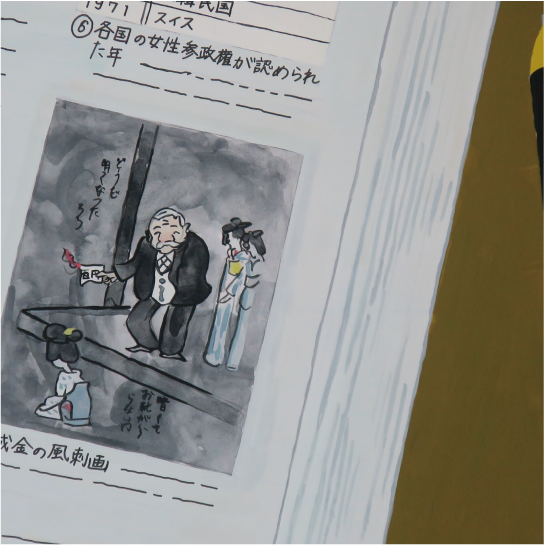 1971
韓民国
スイス
⑥各国の女性参政権が認められ
た年
どうだ
明くなつた
ろう
百円
暗くて
お靴がわ
らない
成金の風刺画